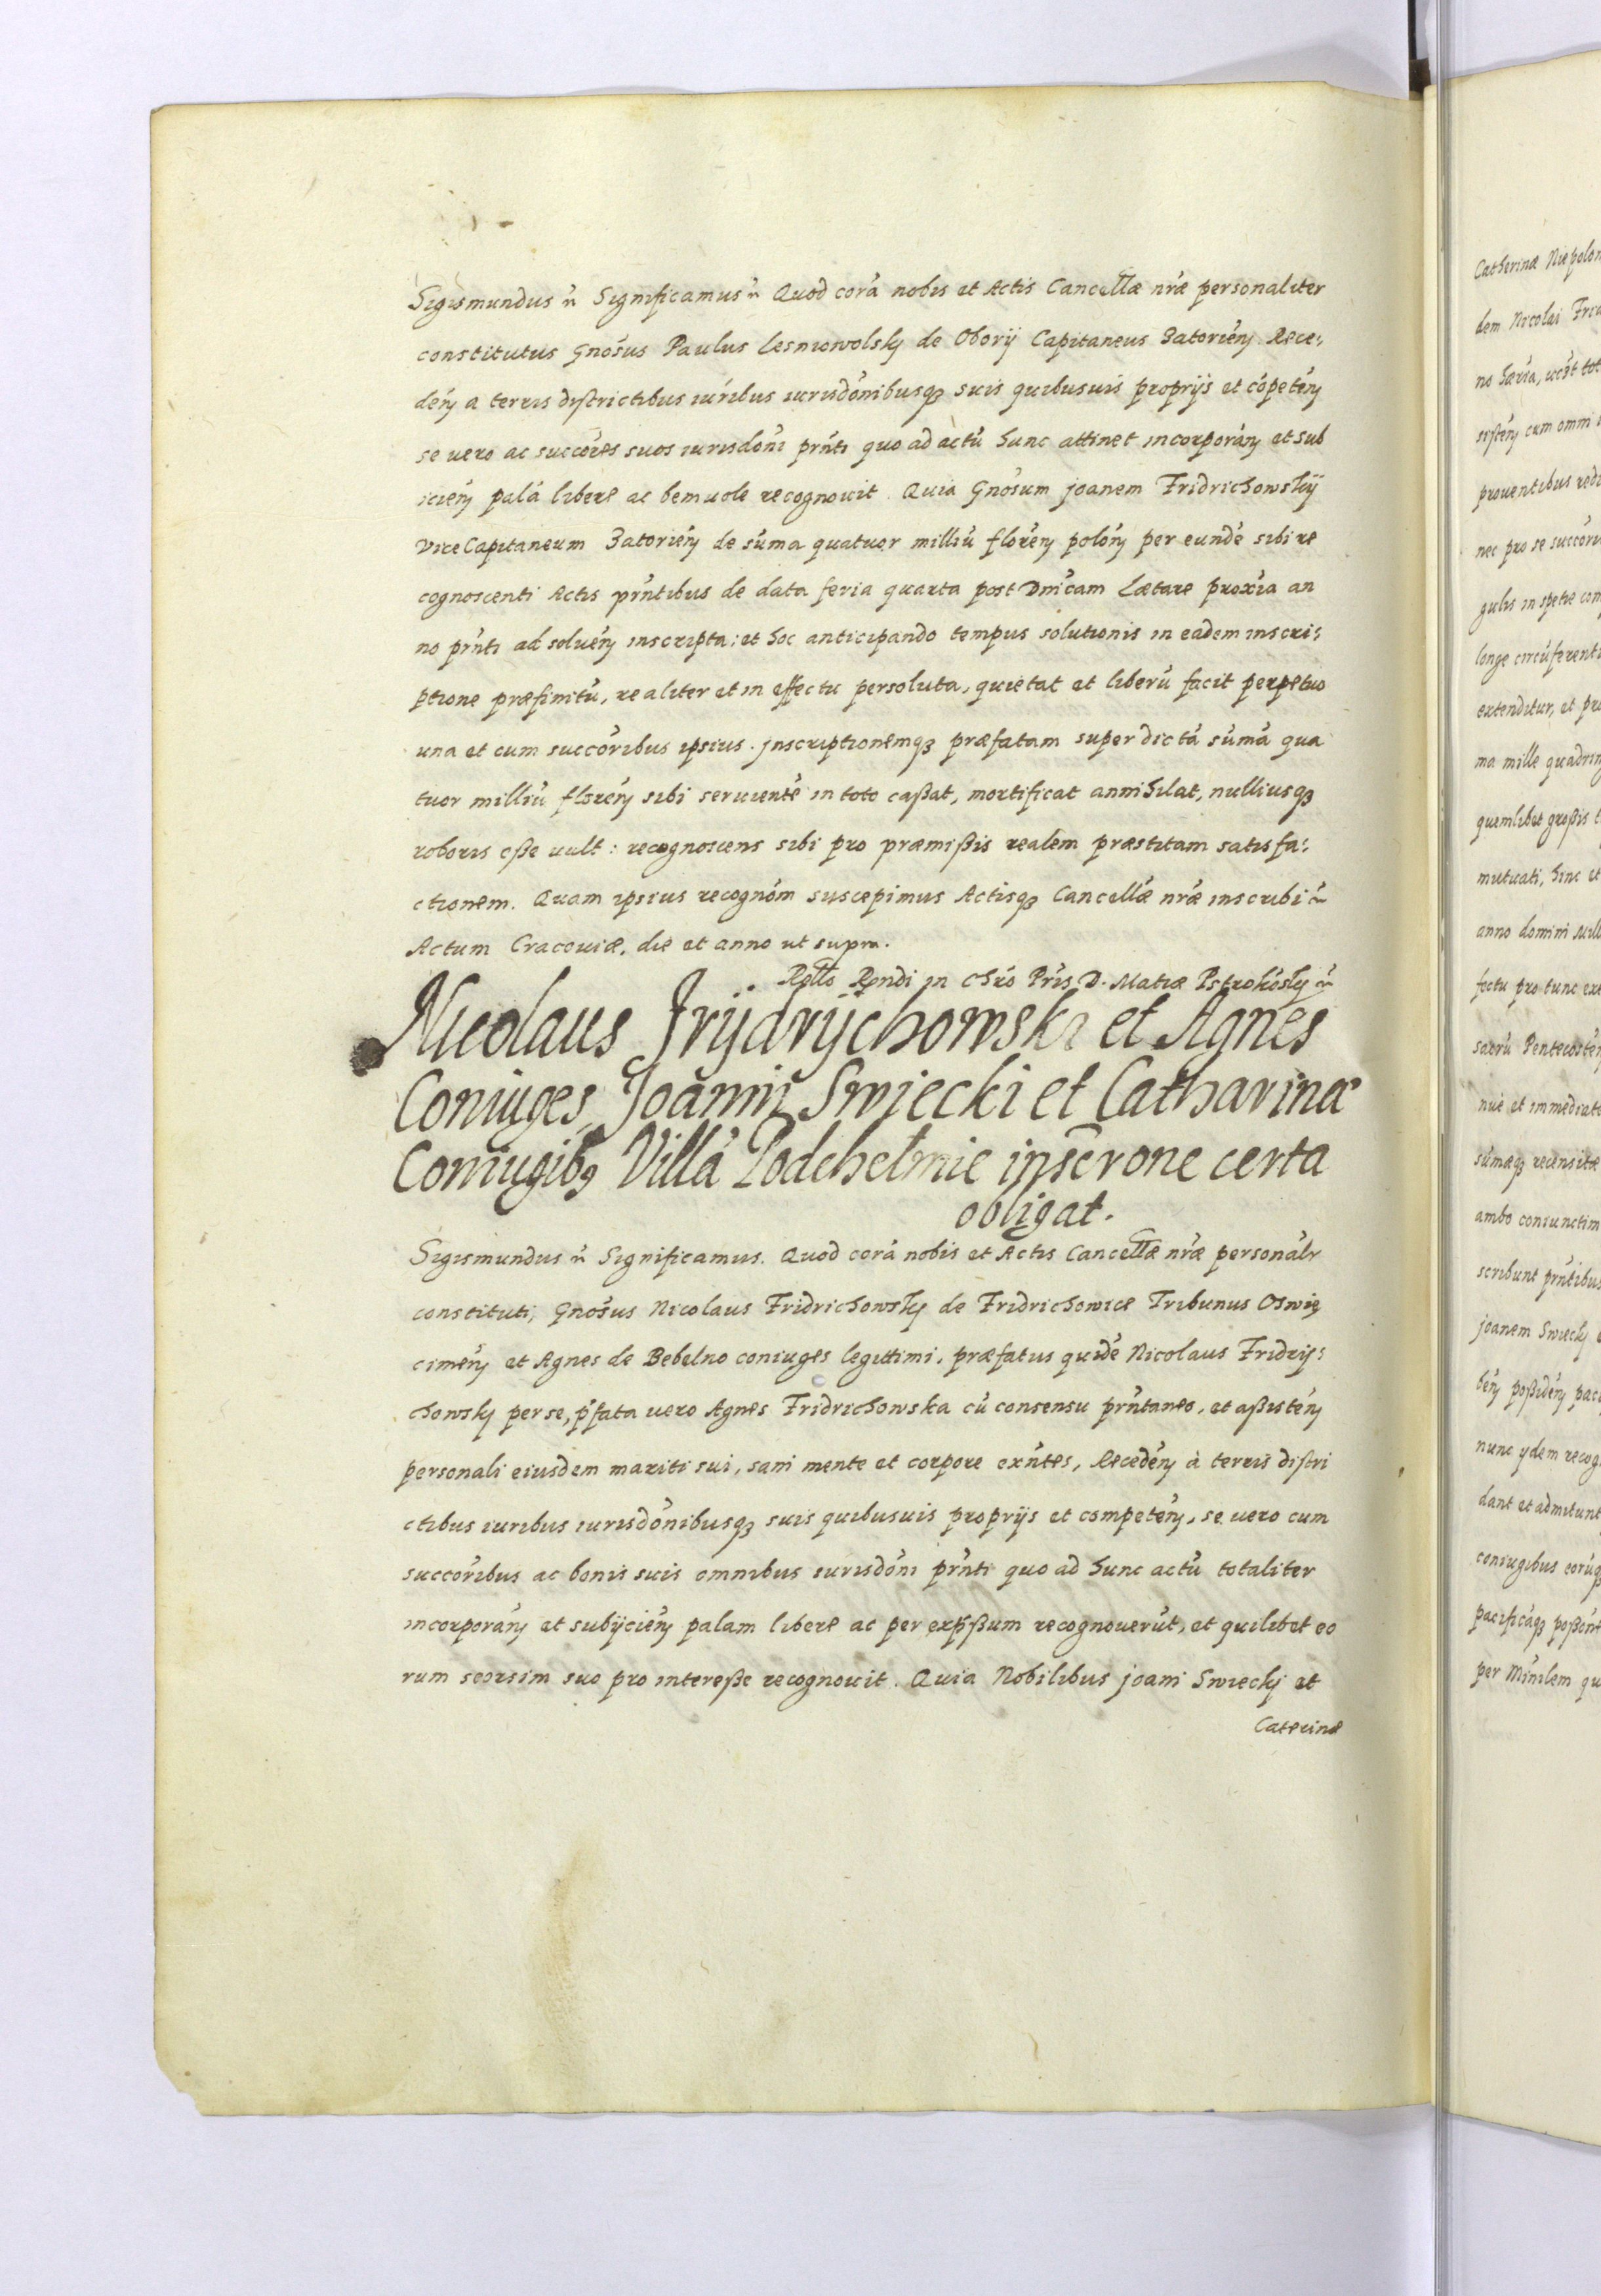 Sigismundus etc Significamus etc Quod corã nobis et Actis Cancellæ nr̃æ personaliter
constitutus Gnõsus Paulus Lesniowolskj de Oborÿ Capitaneus Zatoriẽn Rece:
dẽn a terris districtibus iuribus iurisdõnibusq3 suis quibusuis proprijs et cõpetẽn
se uero ac succõres suos iurisdõni prñti quo ad actũ hunc attinet incorporãn et sub
iiciẽn palã libere ac beniuole recognouit. Quia Gnõsum joanem Fridrichowskÿ
ViceCapitaneum Zatoriẽn de sũma quatuor milliũ florẽn polõn per eundẽ sibi re
cognoscenti Actis prñtibus de data feria quarta post Dnĩcam Lætare proxĩa an
no prñti ad soluẽn inscripta: et hoc anticipando tempus solutionis in eadem inscri:
ptione præfinitũ, realiter et in effectu persoluta, quietat et liberũ facit perpetuo
una et cum succõribus ipsius. jnscriptionemq3 præfatam super dictã sũmã qua
tuor milliũ florẽn sibi seruientẽ in toto caßat, mortificat annihilat, nulliusq3
roboris eße uult: recognoscens sibi pro præmißis realem præstitam satisfa:
ctionem. Quam ipsius recognõm suscepimus Actisq3 Cancellæ nr̃æ inscribi etc
Actum Cracouiæ, die et anno ut supra.
Rello Rendi in Chrõ Pr̃is D. Matiæ Pstrokõskj etc
Nicolaus Frÿdrÿchowski et Agnes
Coniuges, Joãnni Swiecki et Catharinæ
Coniugib9 Villã Podchelmie inscr̃one certa
obligat.
Sigismundus etc Significamus. Quod corã nobis et Actis Cancellæ nr̃æ personãlr
constituti, Gnõsus Nicolaus Fridrichowskj de Fridrichowice Tribunus Oswię
cimẽn et Agnes de Bebelno coniuges legittimi, præfatus quidẽ Nicolaus Fridry:
chowskj per se, p̃fata uero Agnes Fridrichowska cũ consensu prñtaneo, et aßistẽn
personali eiusdem mariti sui, sani mente et corpore exñtes, Recedẽn à terris distri
ctibus iuribus iurisdõnibusq3 suis quibusuis proprijs et competẽn, se uero cum
succõribus ac bonis suis omnibus iurisdõni prñti quo ad hunc actũ totaliter
incorporãn et subÿciẽn palam libere ac per exp̃ßum recognouerũt, et quilibet eo
rum seorsim suo pro intereße recognouit. Quia Nobilibus joani Swieckj et
Caterinæ
Catherinæ Niepolom
dem Nicolai
no
sistẽn cum omni
prouentibus redi
nec pro se succõri
gulis in spetie com
longe circũferenti
extenditur, et pro
ma mille quadrin
quemlibet großis
mutuati, hinc et
anno domini mill
fectu pro tunc exi
sacrũ Pentecostẽn
nuẽ et immediate
sũmæq3 recensitæ
ambo coniunctim
scribunt prñtibus
joanem Swieckj
bẽn poßidẽn paci
nunc ydem recog
dant et admitunt
coniugibus eorũq
pacificãq3 poßion
per Minĩlem qu